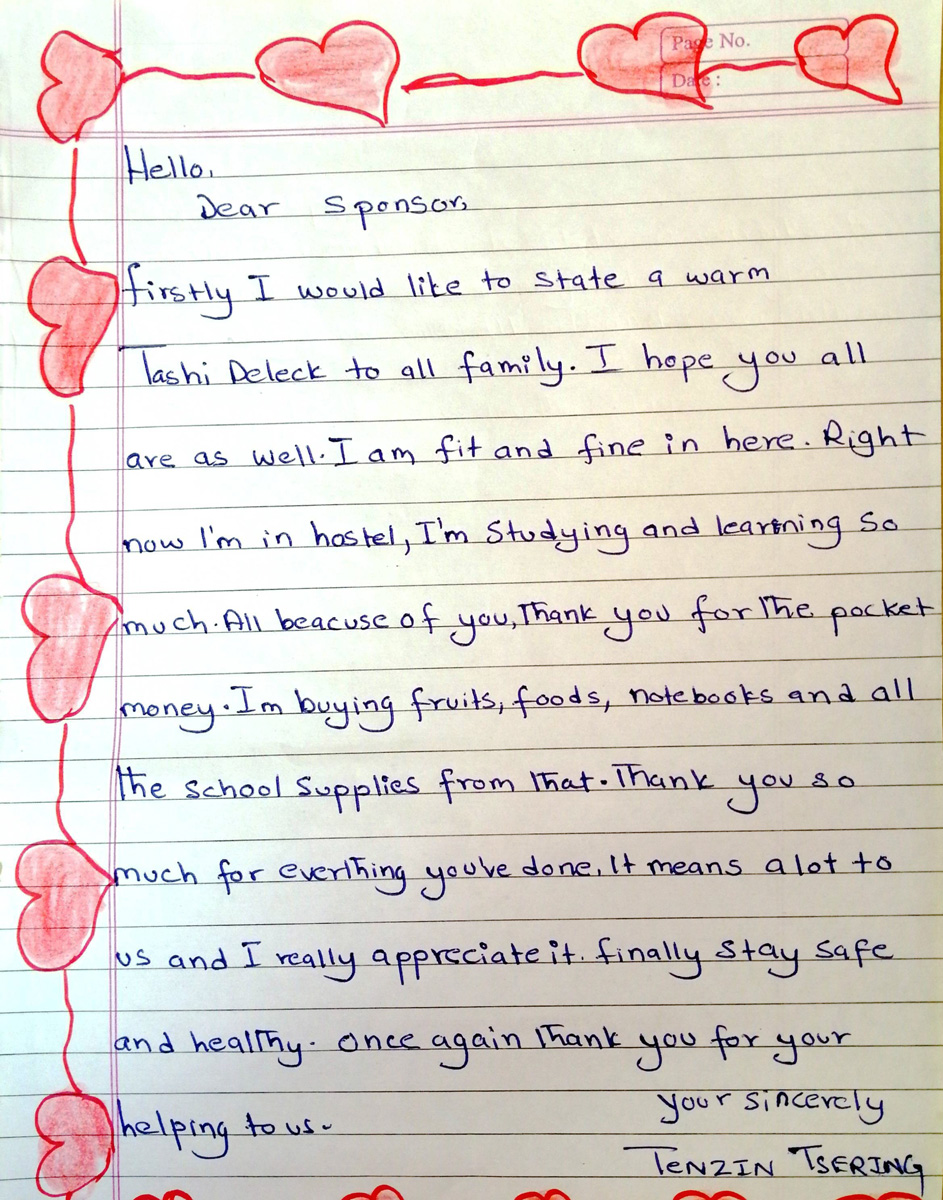 Page No.
Date :
Hello,
Dear Sponsor,
firstly I would like to state a warm
Tashi Deleck to all family. I hope you all
are as well. I am fit and fine in here. Right
now I'm in hostel, I'm Studying and learning so
much. All beacuse of you, Thank you for The pocket
money. Im buying fruits, foods, notebooks and all
The school supplies from That. Thank you so
much for everthing you've done. It means a lot to
us and I really appreciate it. finally stay safe
and healthy. Once again Thank you for your
helping to us.
your sincerely
TENZIN TSERING